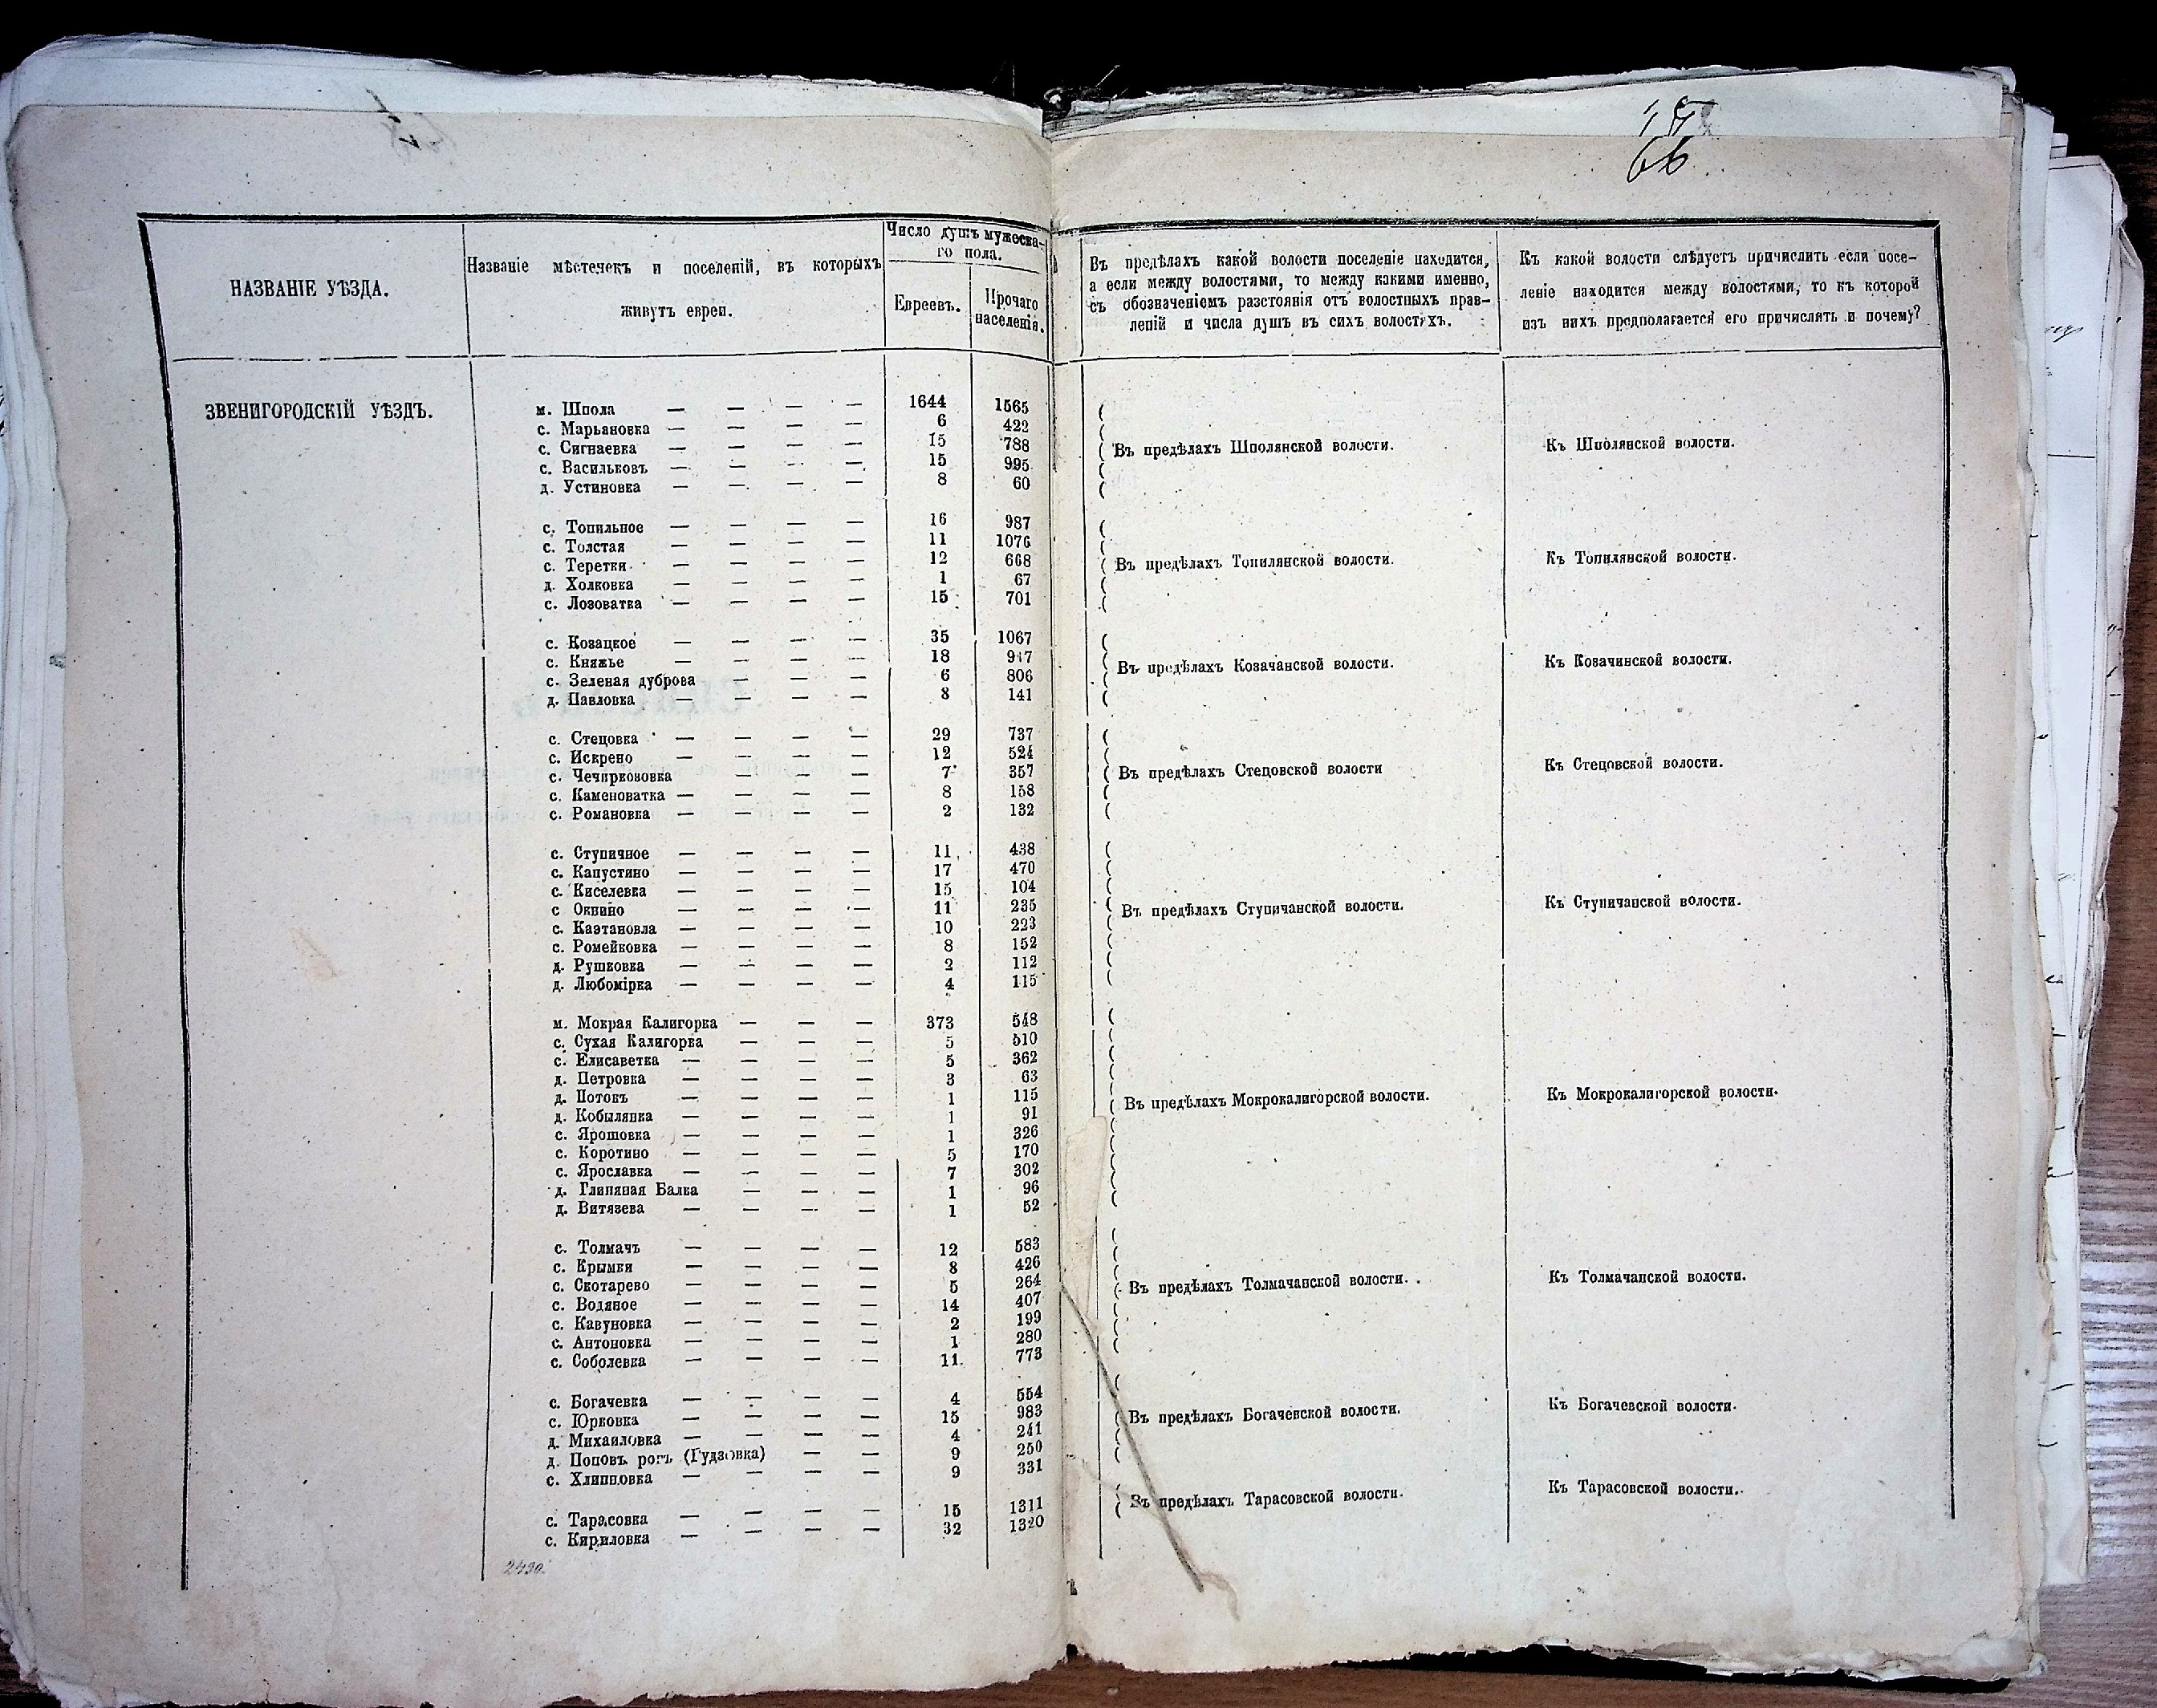 17
66
НАЗВАНІЕ УѢЗДА.
Названіе мѣстечекъ и поселеній, въ которыхъ
живутъ евреи.
Число душъ мужеска-
го пола.
Евреевъ.
Прочаго
населенія.
Въ предѣлахъ какой волости поселеніе находится,
а если между волостями, то между какими именно,
съ обозначеніемъ разстоянія отъ волостныхъ прав-
леній и числа душъ въ сихъ волостяхъ.
Къ какой волости слѣдуетъ причислить если посе-
леніе находится между волостями, то къ которой
изъ нихъ предполагается его причислять и почему?
ЗВЕНИГОРОДСКІЙ УѢЗДЪ.
м. Шпола — — — — 1644 1565
с. Марьяновка — — — — 6 422
с. Сигнаевка — — — — 15 788
с. Васильковъ — — — — 15 995
д. Устиновка — — — — 8 60
Въ предѣлахъ Шполянской волости.
Къ Шполянской волости.
с. Топильное — — — — 16 987
с. Толстая — — — — 11 1076
с. Теретки — — — — 12 668
д. Холковка — — — — 1 67
с. Лозоватка — — — — 15 701
Въ предѣлахъ Топилянской волости.
Къ Топилянской волости.
с. Козацкое — — — — 35 1067
с. Княжье — — — — 18
с. Зеленая дуброва — — — 6 806
д. Павловка — — — — 8 141
Въ предѣлахъ Козачанской волости.
Къ Козачинской волости.
с. Стецовка — — — — 29 737
с. Искрено — — — — 12 524
с. Чечиркозовка — — — 7 357
с. Каменоватка — — — — 8 158
с. Романовка — — — — 2 132
Въ предѣлахъ Стецовской волости
Къ Стецовской волости.
с. Ступичное — — — — 11 438
с. Капустино — — — — 17 470
с. Киселевка — — — — 15 104
с Окнино — — — — 11 235
с. Каэтановла — — — — 10 223
с. Ромейковка — — — — 8 152
д. Рушковка — — — — 2 112
д. Любомірка — — — — 4 115
Въ предѣлахъ Ступичанской волости.
Къ Ступичанской волости.
м. Мокрая Калигорка — — — 373 548
с. Сухая Калигорка — — — 5 510
с. Елисаветка — — — — 5 362
д. Петровка — — — — 3 63
д. Потокъ — — — — 1 115
д. Кобылянка — — — — 1 91
с. Ярошовка — — — — 1 326
с. Коротино — — — — 5 170
с. Ярославка — — — — 7 302
д. Глиняная Балка — — — 1 96
д. Витязева — — — — 1 52
Въ предѣлахъ Мокрокалигорской волости.
Къ Мокрокалигорской волости.
с. Толмачъ — — — — 12 583
с. Крымки — — — — 8 426
с. Скотарево — — — — 5 264
с. Водяное — — — — 14 407
с. Кавуновка — — — — 2 199
с. Антоновка — — — — 1 280
с. Соболевка — — — — 11 773
Въ предѣлахъ Толмачанской волости.
Къ Толмачанской волости.
с. Богачевка — — — — 4 554
с. Юрковка — — — — 15 983
д. Михаиловка — — — — 4 241
д. Поповъ рогъ (Гудзовка) — — 9 250
с. Хлипновка — — — — 9 331
Въ предѣлахъ Богачевской волости.
Къ Богачевской волости.
с. Тарасовка — — — — 15 1311
с. Кириловка — — — — 32 1320
Въ предѣлахъ Тарасовской волости.
Къ Тарасовской волости.
2430